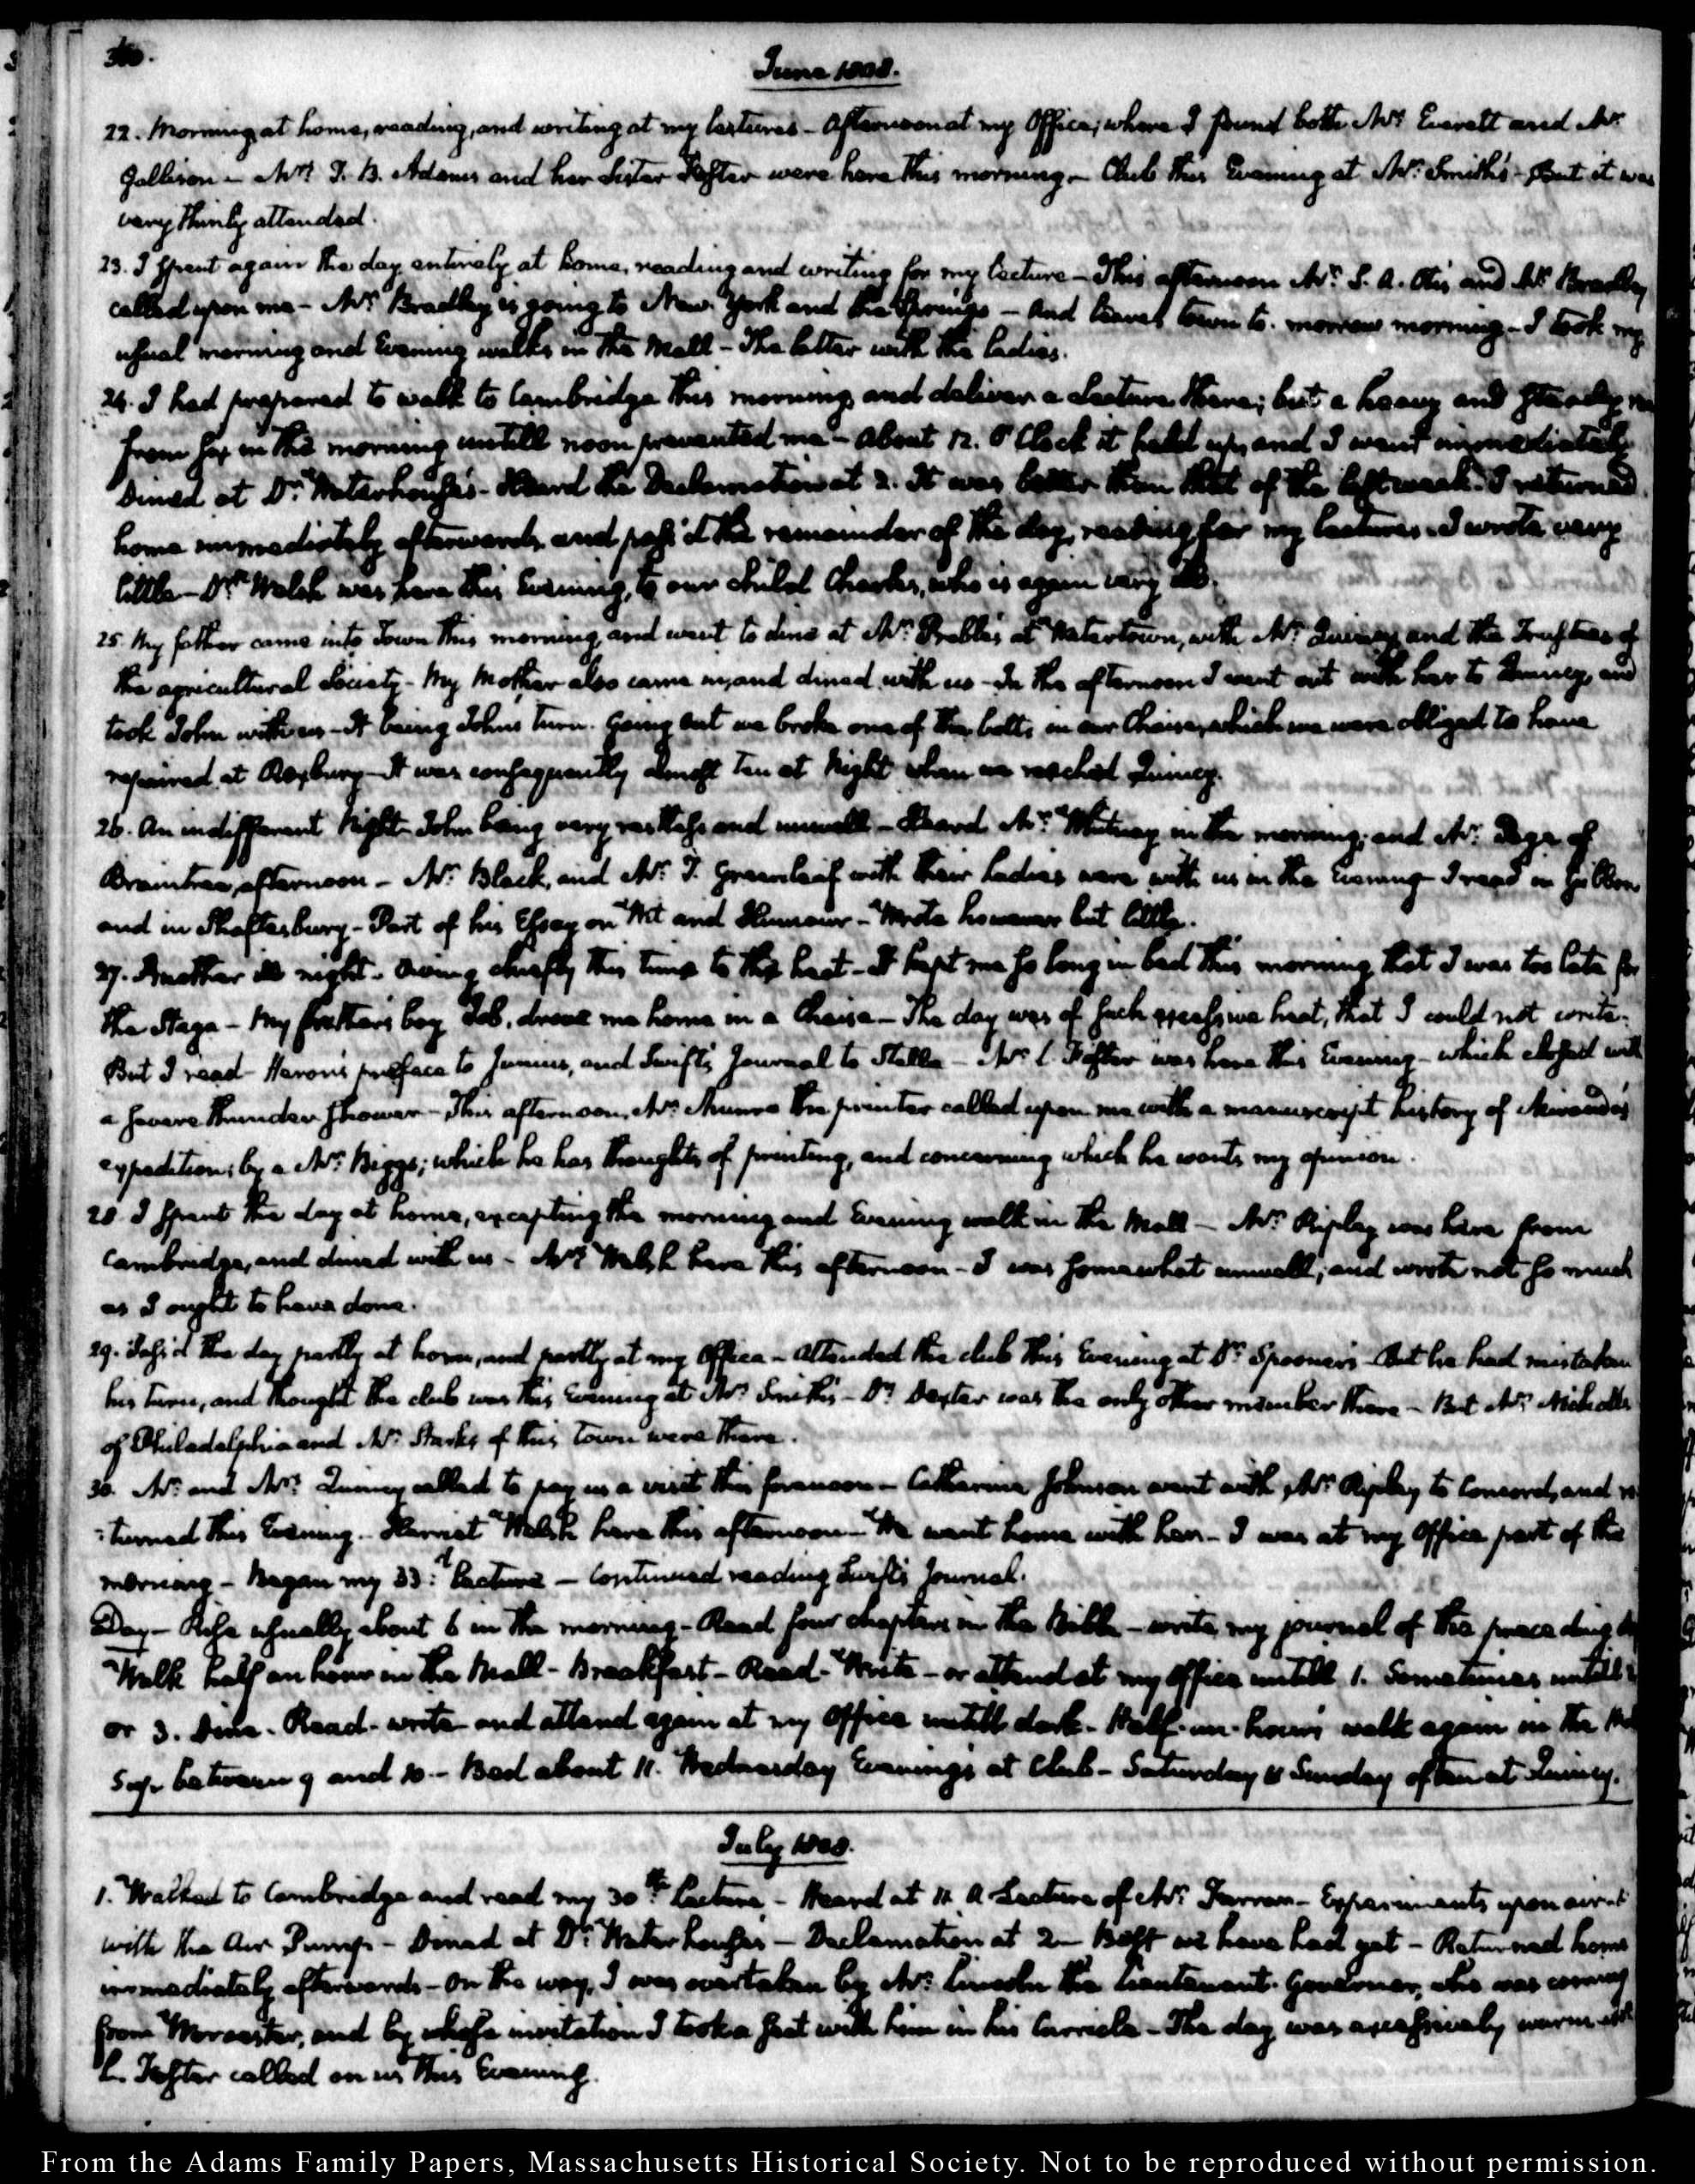 360.
June 1808.
22. Morning at home, reading, and writing at my lectures - Afternoon at my Office; where I found both Mr. Everett and Mr.
Gallison - Mrs. T. B. Adams and her Sister Foster were here this morning - Club this Evening at Mr. Smith's - But it was
very thinly attended.
23. I spent again the day entirely at home, reading and writing for my lecture - This afternoon Mr. S. A. Otis and Mr. Bradley
called upon me - Mr. Bradley is going to New York and the Springs - And leaves town to-morrow morning - I took my
usual morning and Evening walks in the Mall - The latter with the ladies.
24. I had prepared to walk to Cambridge this morning and deliver a Lecture there; but a heavy and steady
from six in the morning untill noon prevented me - About 12. O'Clock it held up, and I went immediately
Dined at Dr. Waterhouse's - Heard the Declamation at 2. It was better than that of the last week. I returned
home immediately afterwards, and pass'd the remainder of the day, reading for my lectures. I wrote very
little - Dr. Welsh was here this Evening, to our child Charles, who is again very ill.
25. My father came into Town this morning, and went to dine at Mr. Preble's at Watertown, with Mr. Quincy and the Trustees of
the agricultural Society - My Mother also came in, and dined with us - In the afternoon I went out with her to Quincy, and
took John with us - It being Johns turn. Going out we broke one of the bolts in our Chaise, which we were obliged to have
repaired at Roxbury - It was consequently almost Ten at Night when we reached Quincy.
26. An indifferent Night - John being very restless and unwell - Heard Mr. Whitney in the morning; and Mr. Page of
Braintree, afternoon - Mr. Black, and Mr. T. Greenleaf with their ladies were with us in the Evening - I read in Gibbon
and in Shaftesbury - Part of his Essay on Wit and Humour - Wrote however but little.
27. Another ill night - Owing chiefly this time to the heat - It kept me so long in bed this morning that I was too late for
the Stage - My father's boy Job, drove me home in a Chaise - The day was of such excessive heat, that I could not write.
But I read Heron's preface to Junius, and Swift's Journal to Stella - Mr. L. Foster was here this Evening - which closed with
a severe thunder shower - This afternoon, Mr. Munroe the printer called upon me with a manuscript history of Miranda's
expedition; by a Mr. Biggs; which he has thoughts of printing, and concerning which he wants my opinion.
28. I spent the day at home, excepting the morning and Evening walk in the Mall - Mr. Ripley was here from
Cambridge, and dined with us - Mrs. Welsh here this afternoon - I was somewhat unwell, and wrote not so much
as I ought to have done.
29. Pass'd the day partly at home, and partly at my Office - Attended the club this Evening at Dr. Spooner's - But he had mistaken
his turn, and thought the club was this Evening at Mr. Smith's - Dr. Dexter was the only other member there - But Mr. Nicholls
of Philadelphia and Mr. Sparks of this Town were there.
30. Mr. and Mrs. Quincy called to pay us a visit this forenoon - Catharine Johnson went with Mr. Ripley to Concord, and re
:turned this Evening - Harriet Welsh here this afternoon - We went home with her - I was at my Office part of the
morning - Began my 33.d Lecture - Continued reading Swift's Journal.
Day - Rise usually about 6 in the morning - Read four chapters in the Bible - write my journal of the preceding
Walk half an hour in the Mall - Breakfast - Read - Write - or attend at my office untill 1. Sometimes untill 2
or 3. Dine - Read - write and attend again at my Office untill dark - Half-an-hour's walk again in the Mall
Sup between 9 and 10 - Bed about 11. Wednesday Evenings at Club - Saturday & Sunday often at Quincy.
July 1808.
1. Walked to Cambridge and read my 30th. Lecture - Heard at 11. A Lecture of Mr. Farrar - Experiments upon air
with the Air Pump - Dined at Dr. Waterhouse's - Declamation at 2 - Best we have had yet - Returned home
immediately afterwards - On the way, I was overtaken by Mr. Lincoln the Lieutenant-Governor, who was coming
from Worcester, and by whose invitation I took a seat with him in his Curricle - The day was excessively warm
L. Foster called on us this Evening.
From the Adams Family Papers, Massachusetts Historical Society. Not to be reproduced without permission.